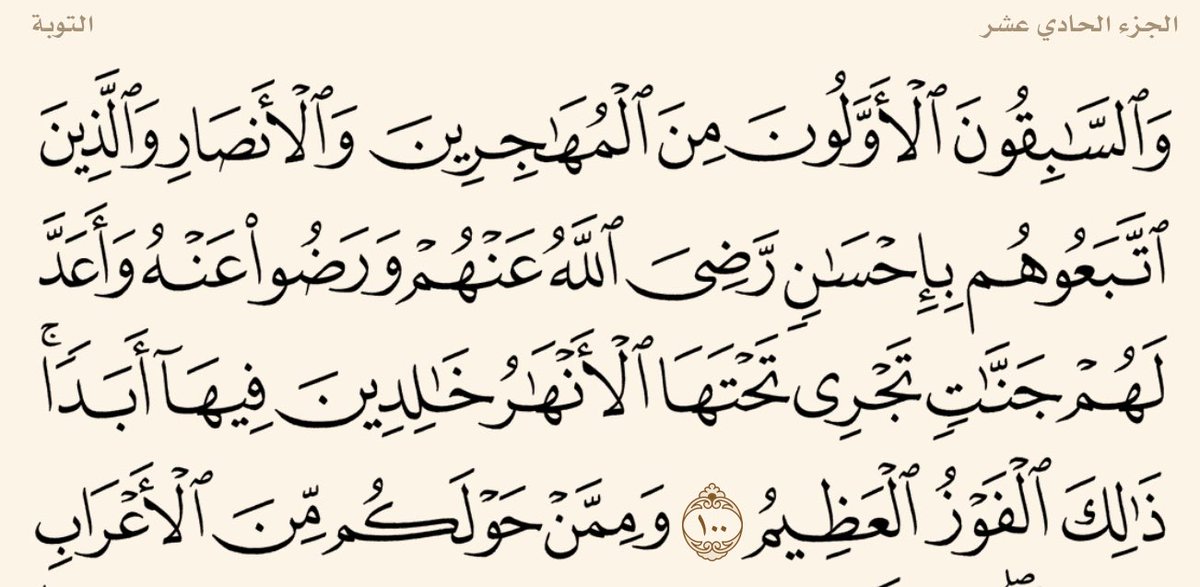 الجزء الحادي عشر
التوبة
وَٱلسَّٰبِقُونَ ٱلْأَوَّلُونَ مِنَ ٱلْمُهَٰجِرِينَ وَٱلْأَنصَارِ وَٱلَّذِينَ
ٱتَّبَعُوهُم بِإِحْسَٰنٍ رَّضِىَ ٱللَّهُ عَنْهُمْ وَرَضُوا۟ عَنْهُ وَأَعَدَّ
لَهُمْ جَنَّٰتٍ تَجْرِى تَحْتَهَا ٱلْأَنْهَٰرُ خَٰلِدِينَ فِيهَآ أَبَدًا ۚ
ذَٰلِكَ ٱلْفَوْزُ ٱلْعَظِيمُ ١٠٠ وَمِمَّنْ حَوْلَكُم مِّنَ ٱلْأَعْرَابِ